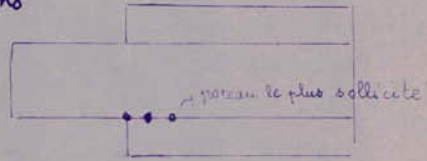 ns
poteau le plus sollicité